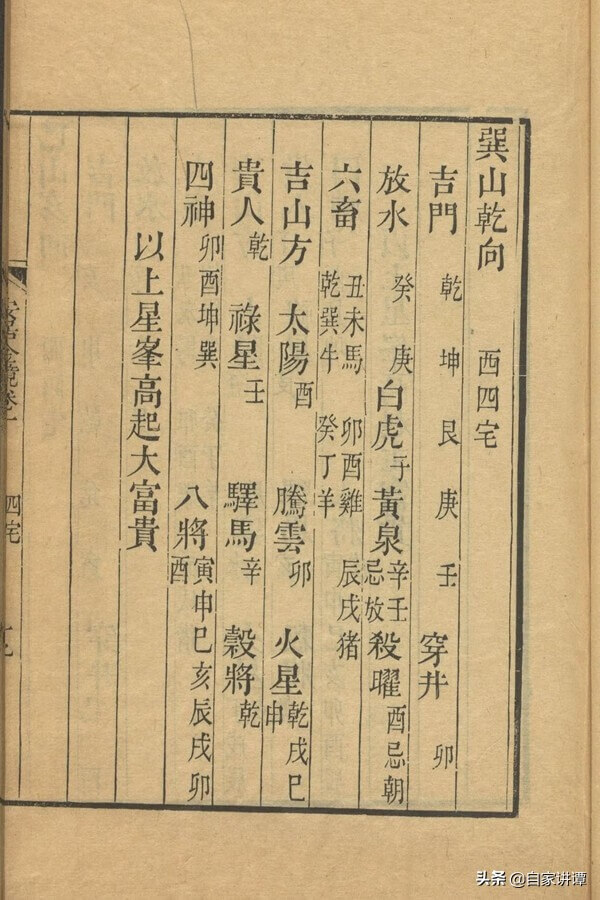 巽山乾向 西四宅
吉門 乾 坤 艮 庚 壬 穿井 卯
放水 癸 庚 白虎 子 黃泉 辛壬忌放 殺曜 酉忌朝
六畜 丑未馬 乾巽牛 卯酉雞 癸丁羊 辰戌猪
吉山方 太陽 酉 騰雲 卯 火星 乾戌巳申
貴人 乾 祿星 壬 驛馬 辛 榖將 乾
四神 卯酉坤巽 八將 寅申巳亥辰戌卯酉
以上星峯高起大富貴
四宅
头条 @自家讲谭